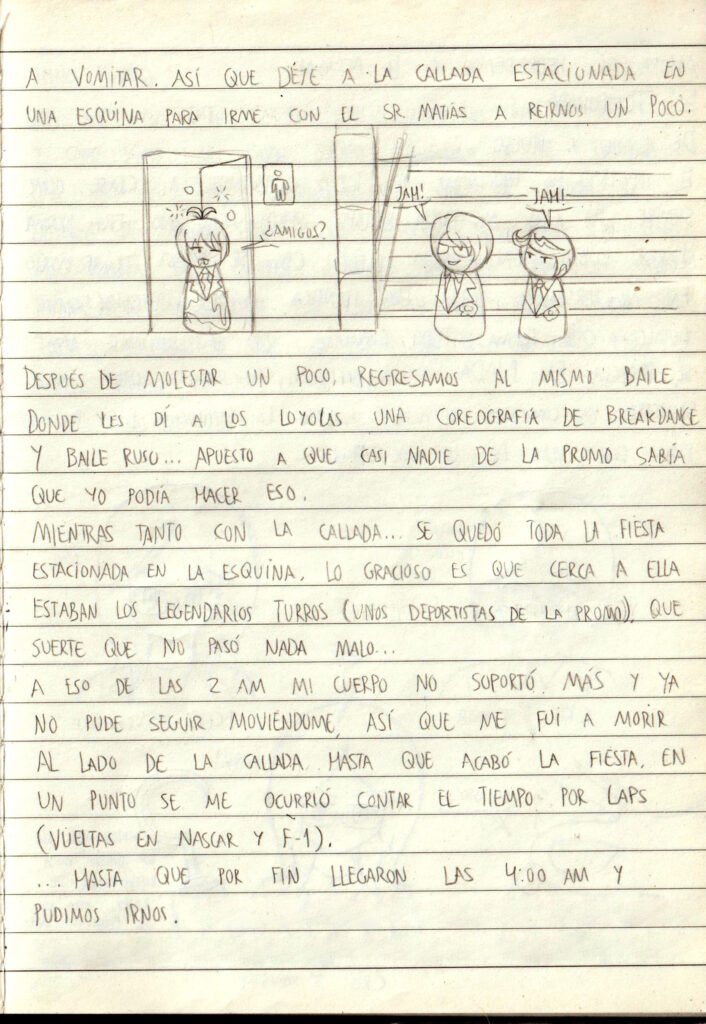 A VOMITAR. ASÍ QUE DEJE A LA CALLADA ESTACIONADA EN
UNA ESQUINA PARA IRME CON EL SR. MATIÁS A REIRNOS UN POCO.
¿AMIGOS?
JAH!
JAH!
DESPUES DE MOLESTAR UN POCO, REGRESAMOS AL MISMO BAILE
DONDE LES DÍ A LOS LOYOLAS UNA COREOGRAFÍA DE BREAKDANCE
Y BAILE RUSO... APUESTO A QUE CASI NADIE DE LA PROMO SABÍA
QUE YO PODÍA HACER ESO.
MIENTRAS TANTO CON LA CALLADA... SE QUEDÓ TODA LA FIESTA
ESTACIONADA EN LA ESQUINA. LO GRACIOSO ES QUE CERCA A ELLA
ESTABAN LOS LEGENDARIOS TURROS (UNOS DEPORTISTAS DE LA PROMO), QUE
SUERTE QUE NO PASÓ NADA MALO...
A ESO DE LAS 2 AM MI CUERPO NO SOPORTÓ MÁS Y YA
NO PUDE SEGUIR MOVIÉNDOME, ASÍ QUE ME FUÍ A MORIR
AL LADO DE LA CALLADA HASTA QUE ACABÓ LA FIESTA. EN
UN PUNTO SE ME OCURRIÓ CONTAR EL TIEMPO POR LAPS
(VUELTAS EN NASCAR Y F-1).
... HASTA QUE POR FIN LLEGARON LAS 4:00 AM Y
PUDIMOS IRNOS.